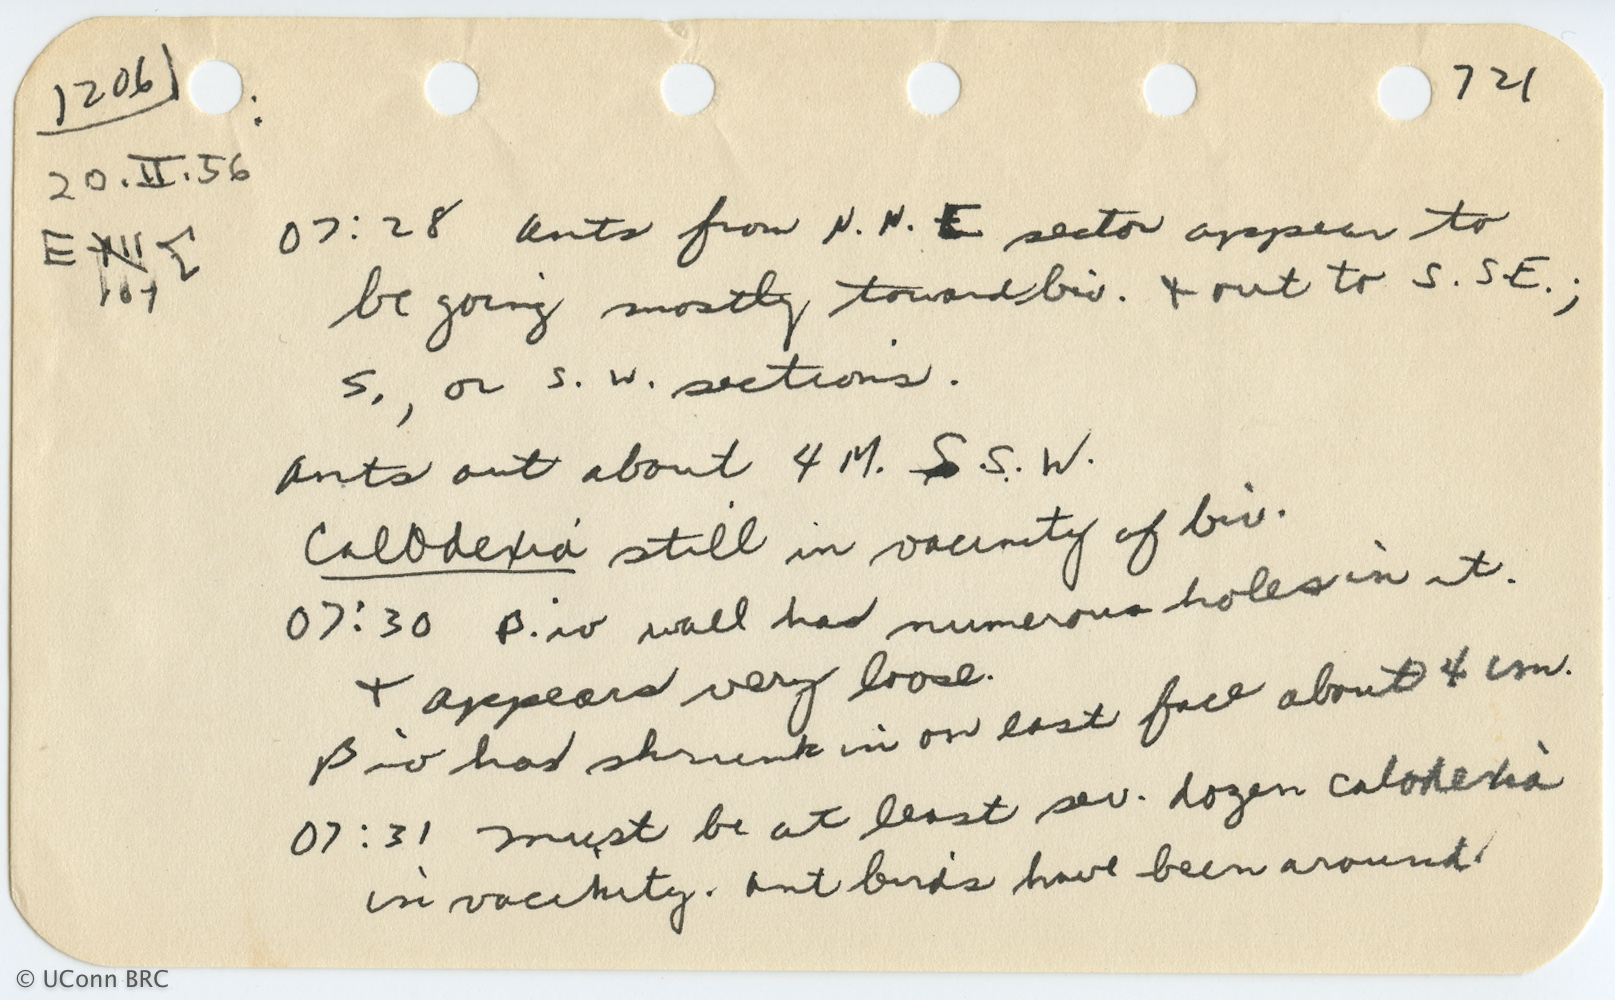 1206 : 721
20.II.56
07:28 Ants from N.N.E sector appear to
be going mostly toward biv. + out to S.SE.;
S., or S.W. sections.
Ants out about 4 M. S.S.W.
Calodexia still in vacinity of biv.
07:30 Biv wall has numerous holes in it.
+ appears very loose.
Biv has shrunk in on east face about 4 cm.
07:31 must be at least sev. dozen calodexia
in vacinity. Ant birds have been around
© UConn BRC